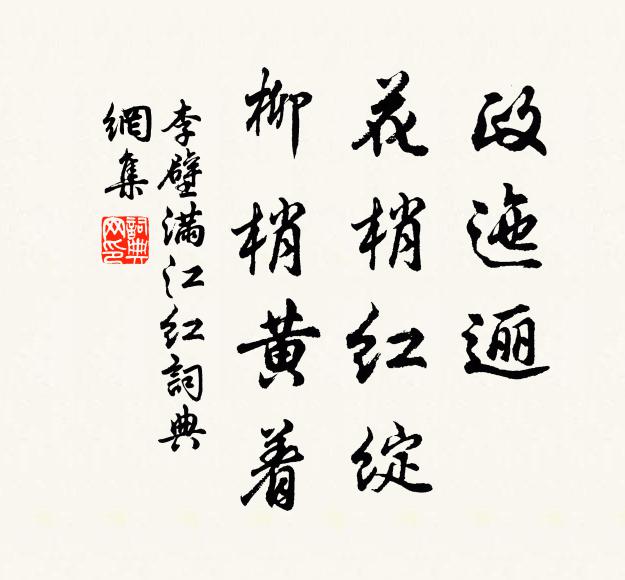 政迤逦
花梢红绽
柳梢黄着
李壁满江红词典
網集
詞典
网印